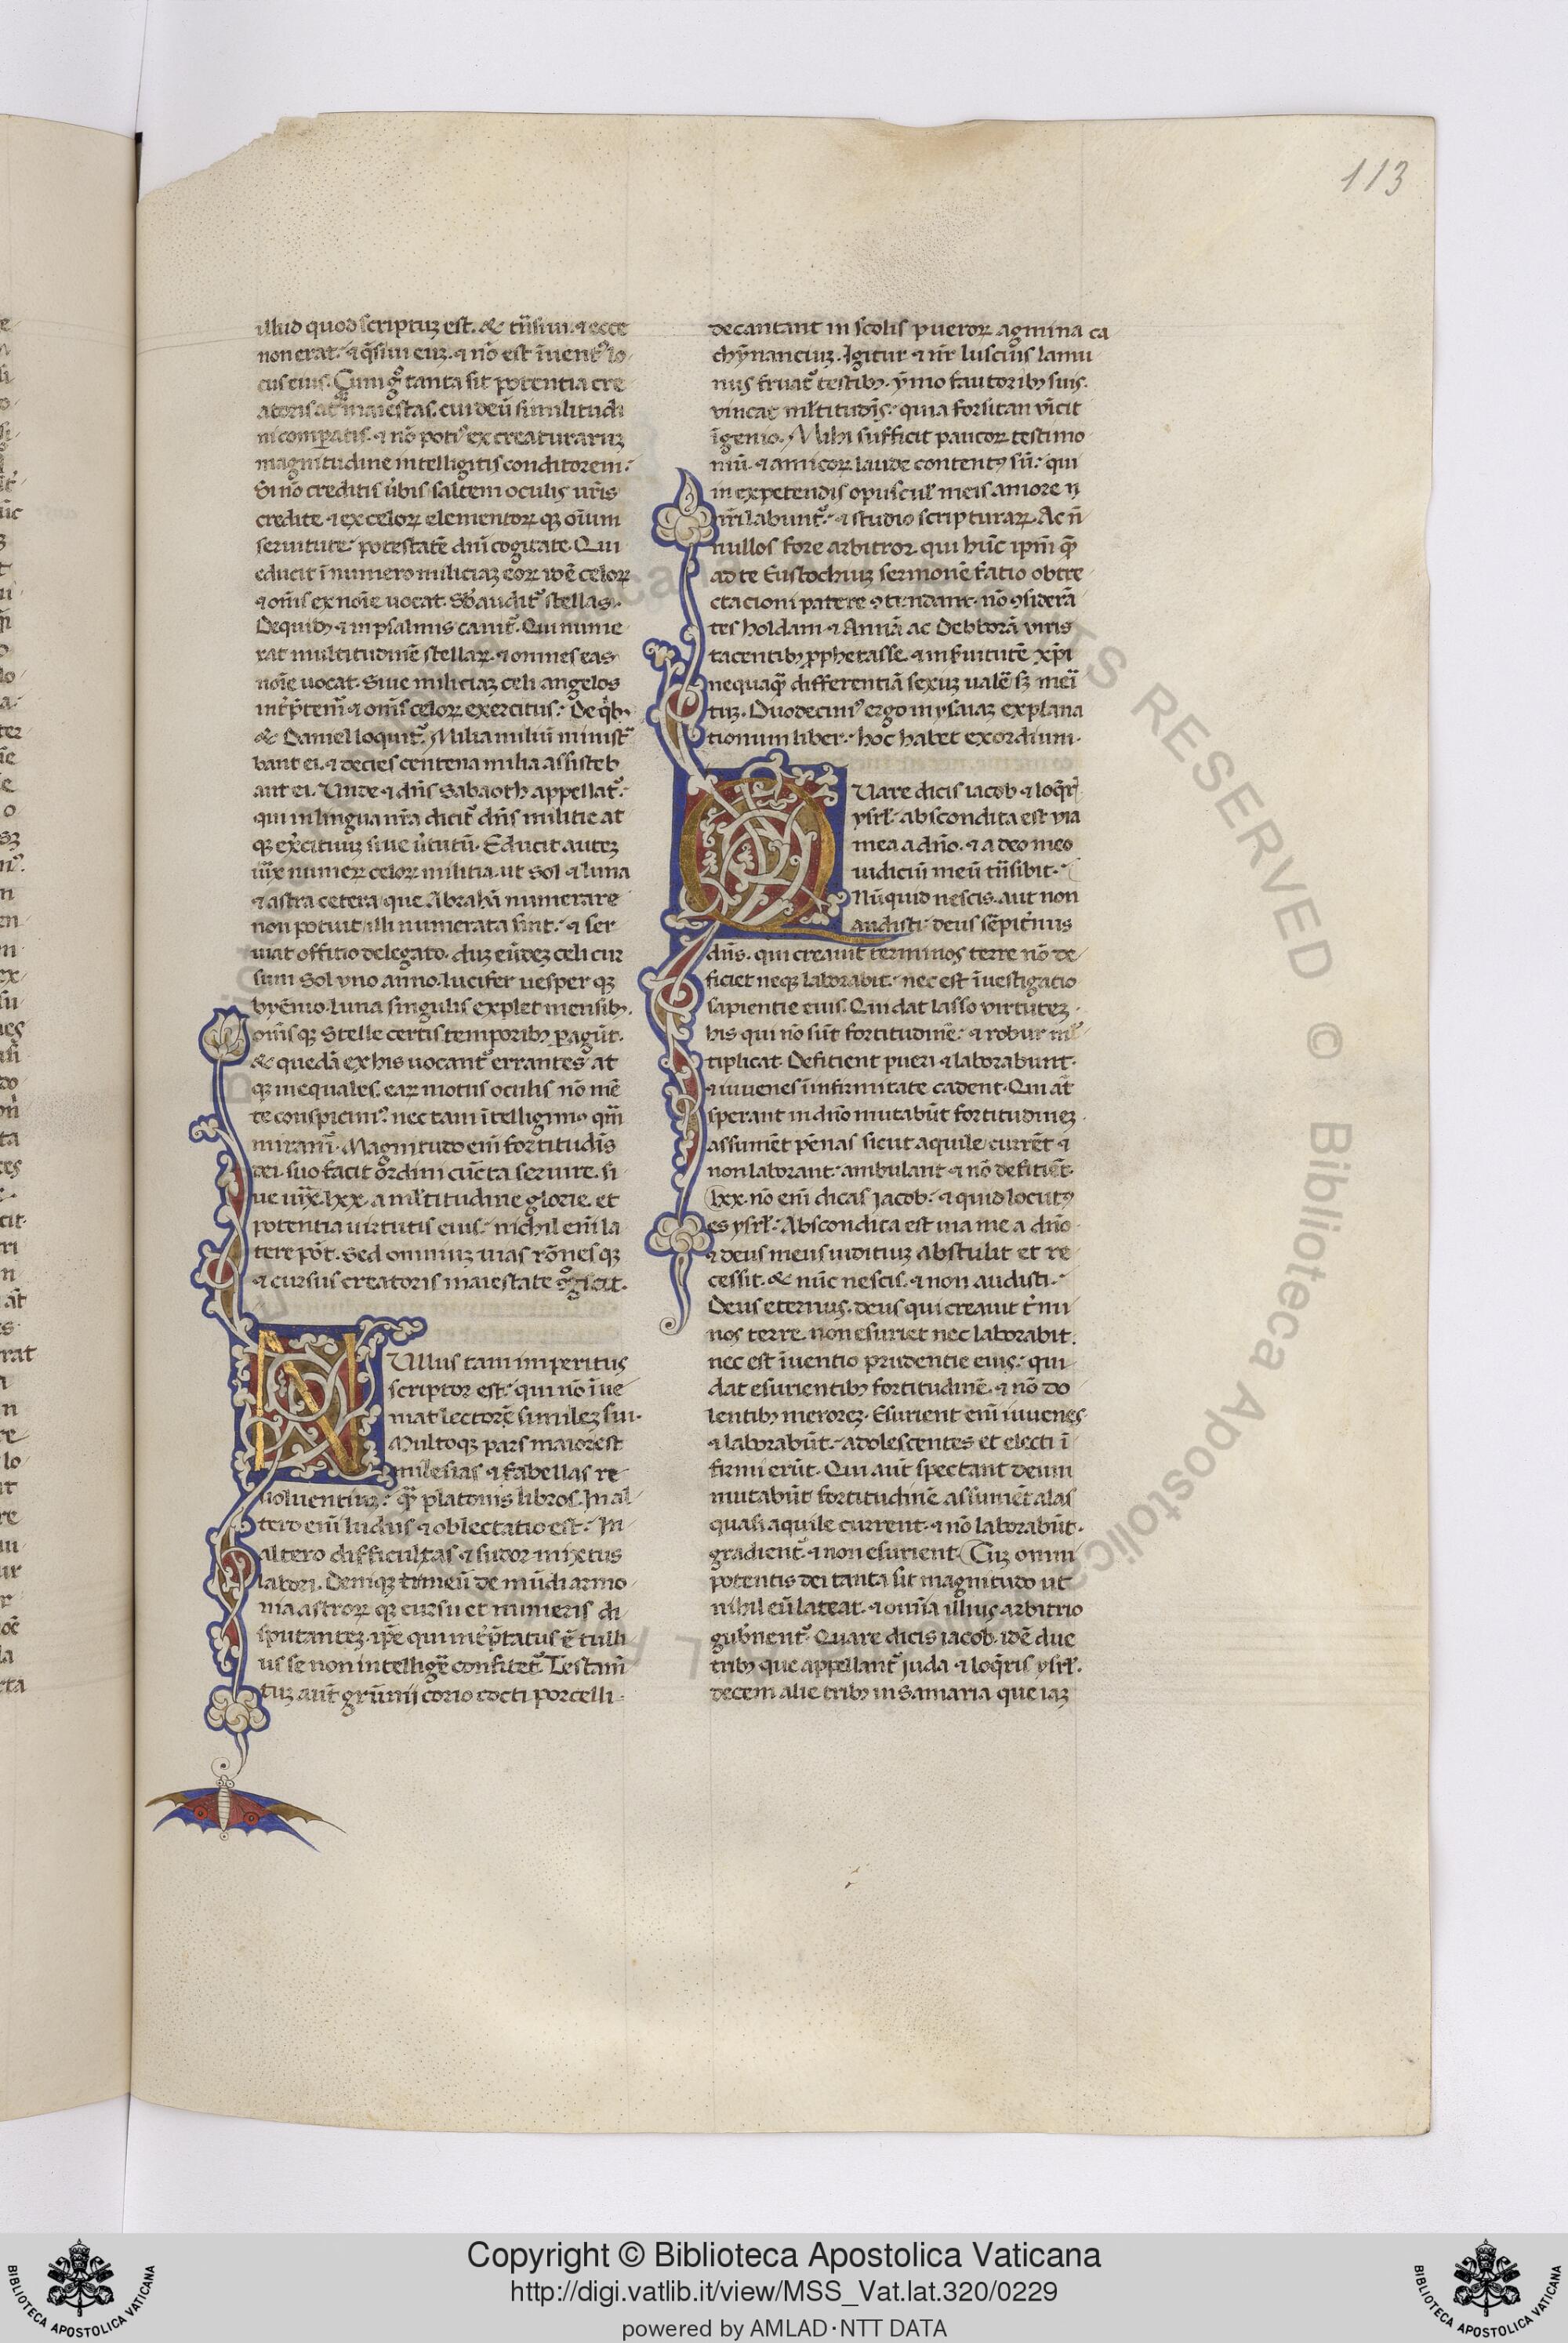 113
illud quod scriptuz est. & trāsiui. ⁊ ecce
non erat. ⁊ q̄siui euz. ⁊ nō est īuentꝰ lo
cus eius. Cum gͦ tanta sit potentia cre
atoris atqꝫ maiestas. cui deū similitudi
ni comparatis. ⁊ nō potiꝰ ex creaturaruz
magnitudine intelligitis conditorem:
Si nō creditis ūbis saltem oculis ur̄is
credite. ⁊ ex celoꝝ elementoꝝ qꝫ oīum
seruitute: potestatē dn̄i cogitate. Qui
educit ī numero miliciaꝫ eoꝝ idē celoꝝ
⁊ om̄s ex noīe uocat. Sb̄auditꝰ stellas.
De quibꝫ ⁊ in psalmis canitꝰ. Qui nume
rat multitudinē stellaꝝ. ⁊ omnes eas
noīe uocat. Siue miliciaꝫ celi angelos
int̄p̄temꝰ ⁊ om̄s celoꝝ exercitus: De qͥbꝫ
& Daniel loquitꝰ. Milia miliū ministᵃ
bant ei. ⁊ decies centena milia assisteb
ant ei. Unde ⁊ dn̄s Sabaoth appellatꝰ:
qui in lingua nr̄a dicitꝰ dn̄s militie at
qꝫ ex̄cituuꝫ siue ūtutū. Educit auteꝫ
iuxͣ numeꝝ celoꝝ militia. ut Sol ⁊ luna
⁊ astra cetera que Abrahā numerare
non potuit illi numerata sint: ⁊ ser
uiat offitio delegato. duꝫ eūdeꝫ celi cur
sum Sol uno anno. lucifer uesper qꝫ
byēnio. luna singulis explet mensibꝫ.
om̄s qꝫ Stelle certis temporibꝫ pagūt.
& quedā ex his uocantꝰ errantes at
qꝫ inequales. eaꝝ motus oculis nō mē
te conspicimꝰ: nec tam ītelligimꝰ qm̄
miramꝰ. Magnitudo enī fortitudīs
dei. suo facit ordini cūcta seruire. si
ue iuxͣ. lxx. a ml̄titudine glorie. et
potentia uirtutis eius: nichil enī la
tere pōt. Sed omniuꝫ uias rōnes qꝫ
⁊ cursus creatoris maiestate ꝯgͦscit.
NUllus tam imperitus
scriptor est: qui nō īue
niat lectorē simileꝫ sui.
Multoqꝫ pars maior est
milesias ⁊ fabellas re
uoluentiuꝫ: qᷓ platonis libros. In al
tero enī ludus ⁊ oblectatio est: In
altero difficultas ⁊ sudor mixtus
labori. Deniqꝫ timeū de mūdi armo
nia astroꝝ qꝫ cursu et numeris di
sputanteꝫ. ip̄e qui int̄p̄tatus ē tulli
us se non intelligē confitetꝰ. Testam̄
tuꝫ aut̄ grūnij corio cocti porcelli
decantant in scolis pueroꝝ agmina ca
chȳnanciuꝫ. Igitur ⁊ nr̄ luscius lanui
nus fruatꝰ testibꝫ. ȳmo fautoribꝫ suis.
vincat ml̄titudīs: quia forsitan vīcit
īgenio. Mihi sufficit paucoꝝ testimo
niū. ⁊ amicoꝝ laude contentꝰ sū: qui
in expetendis opuscul̄ meis amore n
nr̄i labuntꝰ: ⁊ studio scripturaꝝ. Ac n̄
nullos fore arbitror qui hūc ip̄m qᷓ
ad te Eustochiuꝫ sermonē fatio obtre
ctacioni patere ꝯtendant. nō ꝯsiderā
tes holdam ⁊ Annā ac Debborā viris
tacentibꝫ ꝓphetasse. ⁊ in s̄uitutē xp̄i
nequaqᷓ differentiā sexuꝫ ualē sꝫ mētī
tuꝫ. Duodecimꝰ ergo in ysaiaꝫ explana
tionum liber: hoc habet exordium.
QUare dicis iacob. ⁊ loq̄r̄
ysrl̄: abscondita est via
mea a dn̄o. ⁊ a deo meo
iudiciū meū trāsibit:
Nūquid nescis. aut non
audisti: deus sēpit̄nus
dn̄s. qui creauit terminos terre nō de
ficiet neqꝫ laborabit: nec est īuestigatio
sapientie eius. Qui dat lasso virtuteꝫ.
his qui nō sūt fortitudinē: ⁊ robur ml̄
tiplicat. Deficient pueri ⁊ laborabunt.
⁊ iuuenes ī infirmitate cadent. Qui āt
sperant in dn̄o mutabūt fortitudineꝫ.
assumēt pēnas sicut aquile. currēt ⁊
non laborant: ambulant ⁊ nō defitiēt.
lxx. nō enī dicas Jacob: ⁊ quid locutꝰ
es ysrl̄: Abscondita est uia mea dn̄o.
⁊ deus meus iuditiuꝫ abstulit et re
cessit. & nūc nescis. ⁊ non audisti:
Deus eternus. deus qui creauit t̄mi
nos terre. non esuriet nec laborabit.
nec est īuentio prudentie eius: qui
dat esurientibꝫ fortitudinē. ⁊ nō do
lentibꝫ meroreꝫ. Esurient enī iuuenes
⁊ laborabūt: adolescentes et electi ī
firmi erūt. Qui aūt spectant deum
mutabūt fortitudinē assumēt alas
quasi aquile current. ⁊ nō laborabūt.
gradientꝰ ⁊ non esurient. Cuꝫ omni
potentis dei tanta sit magnitudo ut
nihil eū lateat. ⁊ omīa illius arbitrio
gub̄nentꝰ. Quare dicis iacob. idē due
tribꝫ que appellantꝰ juda. ⁊ loq̄ris ysrl̄.
decem alie tribꝫ in Samaria que iaꝫ
Copyright © Biblioteca Apostolica Vaticana
http://digi.vatlib.it/view/MSS_Vat.lat.320/0229
powered by AMLAD·NTT DATA
BIBLIOTECA APOSTOLICA VATICANA
BIBLIOTECA APOSTOLICA VATICANA